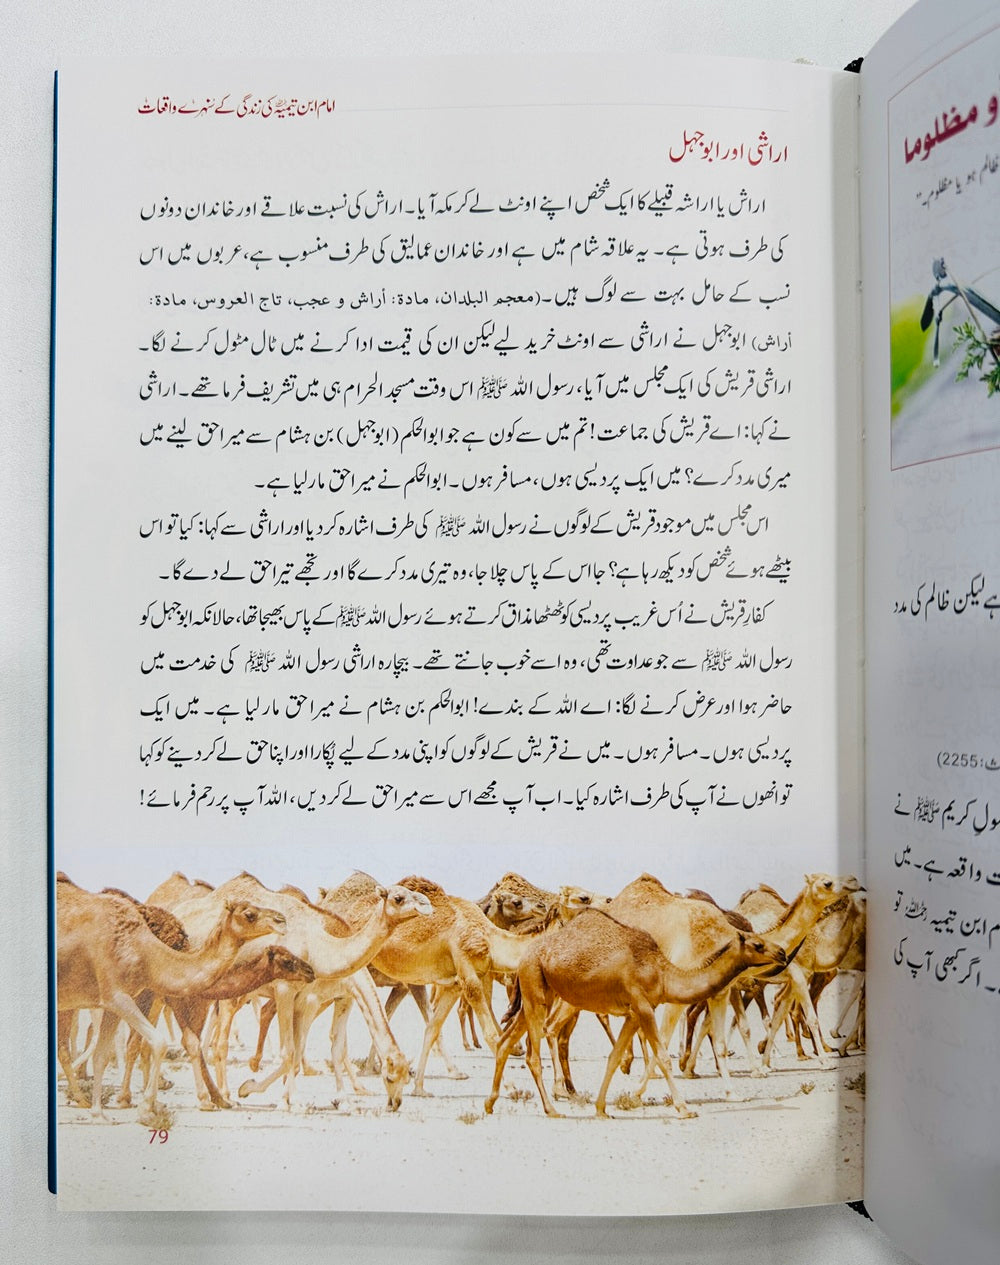 امام ابن تیمیہ رحمہ اللہ کی زندگی کے سنہرے واقعات
اراشی اور ابوجہل
اراش یا اراشہ قبیلے کا ایک شخص اپنے اونٹ لے کر مکہ آیا۔ اراش کی نسبت علاقے اور خاندان دونوں
کی طرف ہوتی ہے۔ یہ علاقہ شام میں ہے اور خاندان عمالیق کی طرف منسوب ہے، عربوں میں اس
نسب کے حامل بہت سے لوگ ہیں۔ (معجم البلدان، مادة: أراش و عجب، تاج العروس، مادة:
أراش) ابوجہل نے اراشی سے اونٹ خرید لیے لیکن ان کی قیمت ادا کرنے میں ٹال مٹول کرنے لگا۔
اراشی قریش کی ایک مجلس میں آیا، رسول اللہ ﷺ اس وقت مسجد الحرام ہی میں تشریف فرما تھے۔ اراشی
نے کہا: اے قریش کی جماعت! تم میں سے کون ہے جو ابوالحکم (ابوجہل) بن ہشام سے میرا حق لینے میں
میری مدد کرے؟ میں ایک پردیسی ہوں، مسافر ہوں۔ ابوالحکم نے میرا حق مار لیا ہے۔
اس مجلس میں موجود قریش کے لوگوں نے رسول اللہ ﷺ کی طرف اشارہ کر دیا اور اراشی سے کہا: کیا تو اس
بیٹھے ہوئے شخص کو دیکھ رہا ہے؟ جا اس کے پاس چلا جا، وہ تیری مدد کرے گا اور تجھے تیرا حق لے دے گا۔
کفارِ قریش نے اُس غریب پردیسی کو ٹھٹھا مذاق کرتے ہوئے رسول اللہ ﷺ کے پاس بھیجا تھا، حالانکہ ابوجہل کو
رسول اللہ ﷺ سے جو عداوت تھی، وہ اسے خوب جانتے تھے۔ بیچارہ اراشی رسول اللہ ﷺ کی خدمت میں
حاضر ہوا اور عرض کرنے لگا: اے اللہ کے بندے! ابوالحکم بن ہشام نے میرا حق مار لیا ہے۔ میں ایک
پردیسی ہوں۔ مسافر ہوں۔ میں نے قریش کے لوگوں کو اپنی مدد کے لیے پُکارا اور اپنا حق لے کر دینے کو کہا
تو انھوں نے آپ کی طرف اشارہ کیا۔ اب آپ مجھے اس سے میرا حق لے کر دیں، اللہ آپ پر رحم فرمائے!
79
و مظلوما
ظالم ہو یا مظلوم۔"
ہے لیکن ظالم کی مدد
2255)
کریم ﷺ نے
واقعہ ہے۔ میں
ابن تیمیہ رحمہ اللہ تو
اگر کبھی آپ کی